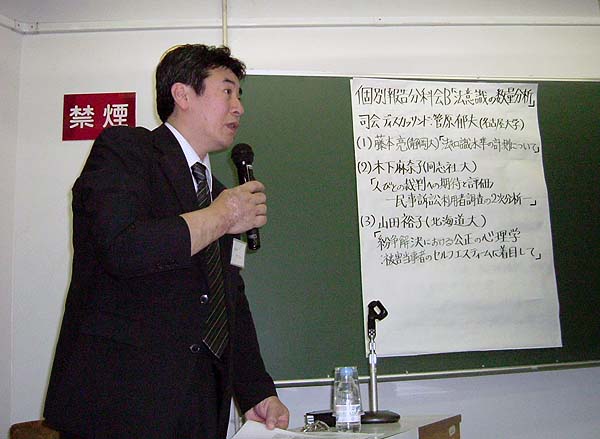 禁煙
個別報告分科会B「法意識の数量分析」
司会・ディスカッサント:菅原郁夫(名古屋大学)
(1)藤本亮(静岡大)「法知識水準の計測について」
(2)木下麻奈子(同志社大)
「人びとの裁判への期待と評価
―民事訴訟利用者調査の2次分析―」
(3)山田裕子(北海道大)
「紛争解決における公正の心理学
:被害当事者のセルフエスティームに着目して」